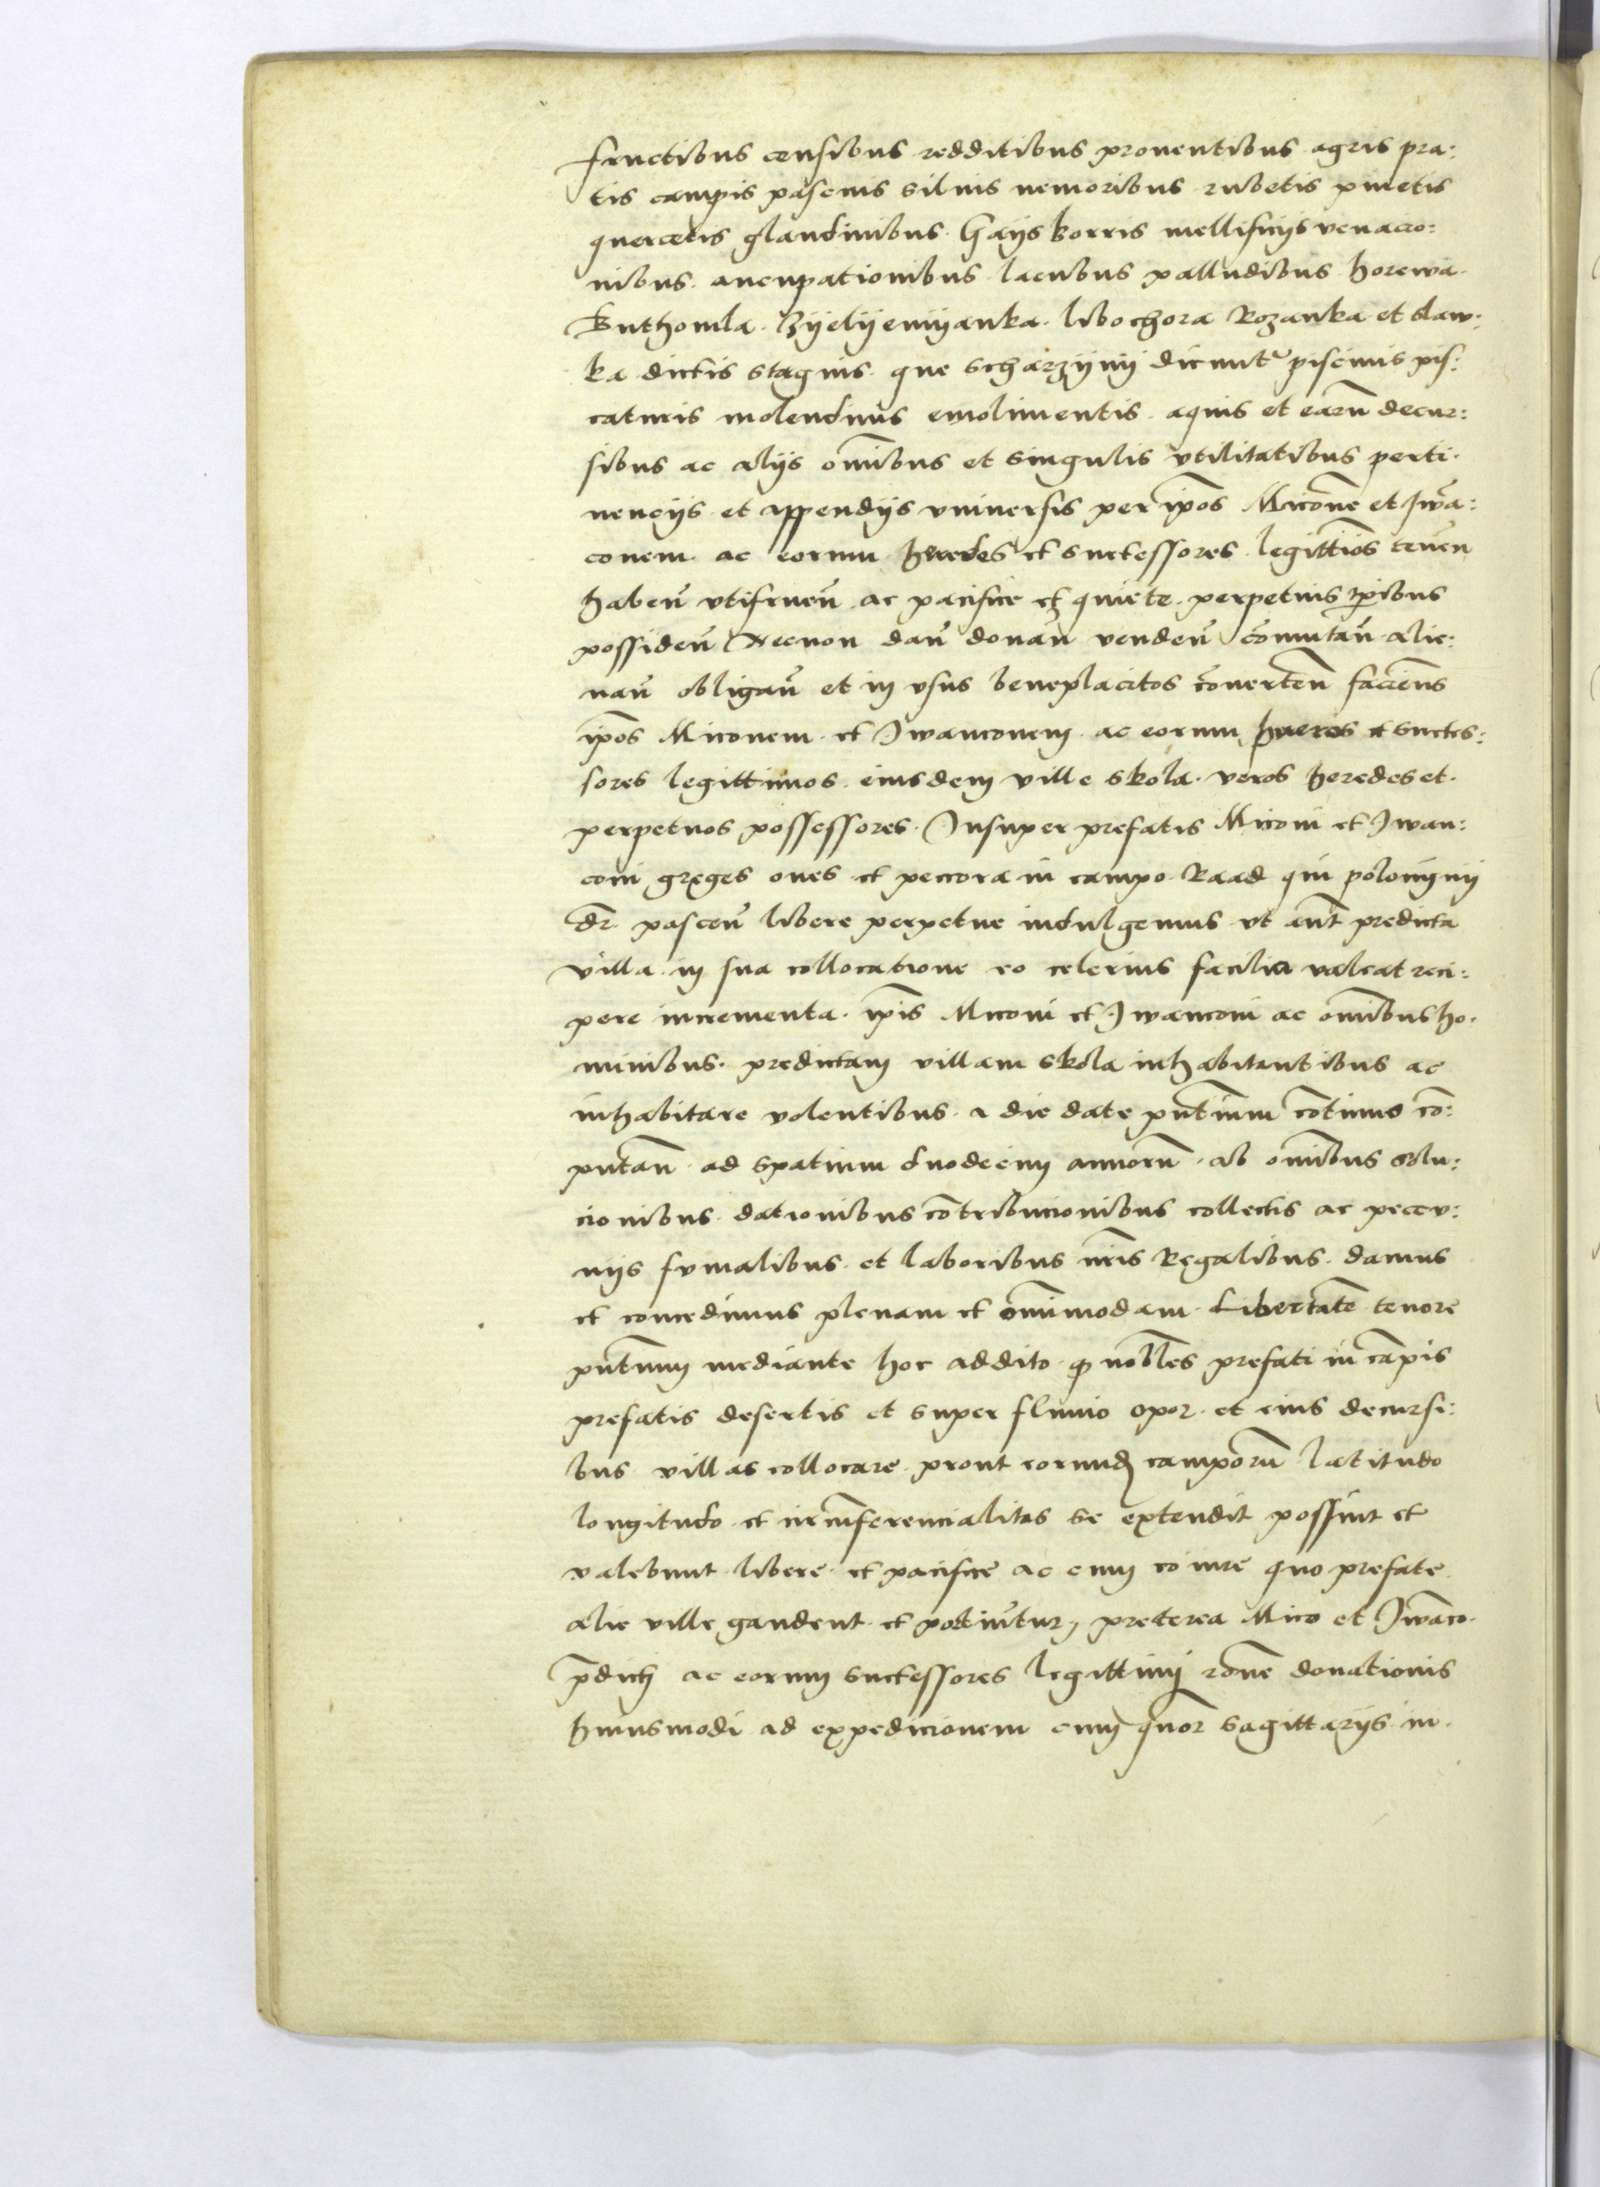 fructibus censibus redditibus prouentibus agris pra:
tis campis pascuis siluis nemoribus rubetis pinetis
quercetis glandinibus. Gayis borris mellificijs venacio:
nibus. aucupationibus lacubus palludibus horewa.
Buthomla. Zyelyemyanka. libochora Rozanka et slaw:
ka dictis stagnis. que scharzyny dicuntr piscinis pis:
caturis molendinis emolimentis. aquis et earu decur:
sibus ac alijs omibus et singulis vtilitatibus perti.
nencijs et appendijs vniuersis per ipos Micone et Jwa:
conem. ac eorum heredes et successores legittios tenen
haben vtifruen ac pacifice et quiete perpetuis tpibus
possiden Necnon dan donan venden comutan alie:
nan obligan et in vsus beneplacitos conuerten faciens
ipos Miconem et Jwanconem ac eorum heredes et succes:
sores legittimos. eiusdem ville skola. veros heredes et.
perpetuos possessores. Insuper prefatis Miconi et Jwan:
coni greges oues et peccora in campo Raad qui polonijny
dr. pascen libere perpetue indulgemus. vt aut predicta
villa in sua collocatione eo celerius facilia valeat reci:
pere incrementa. ipis Miconi et Jwanconi ac omibus ho.
minibus. predictam villam skola inhabitantibus ac
inhabitare volentibus. a die date pntium cotinuo co:
putan ad spatium duodecim annoru. ab omibus solu:
cionibus. dationibus contribucionibus collectis ac peccu:
nijs fumalibus et laboribus nris Regalibus. damus
et concedimus plenam et omimodam Libertate tenore
pntium mediante hoc addito. q nobles prefati in capis
prefatis desertis et super fluuio opor. et eius decursi:
bus villas collocare. prout eorund camporu latitudo
longitudo et circumferencialitas se extendit possint et
valebunt libere et pacifice ac cum eo iure quo prefate
alie ville gaudent et potiuntur, preterea Mico et Jwaco.
pdicti ac eorum successores legittimi rone donationis
huiusmodi ad expedicionem cum quor sagittarijs in.